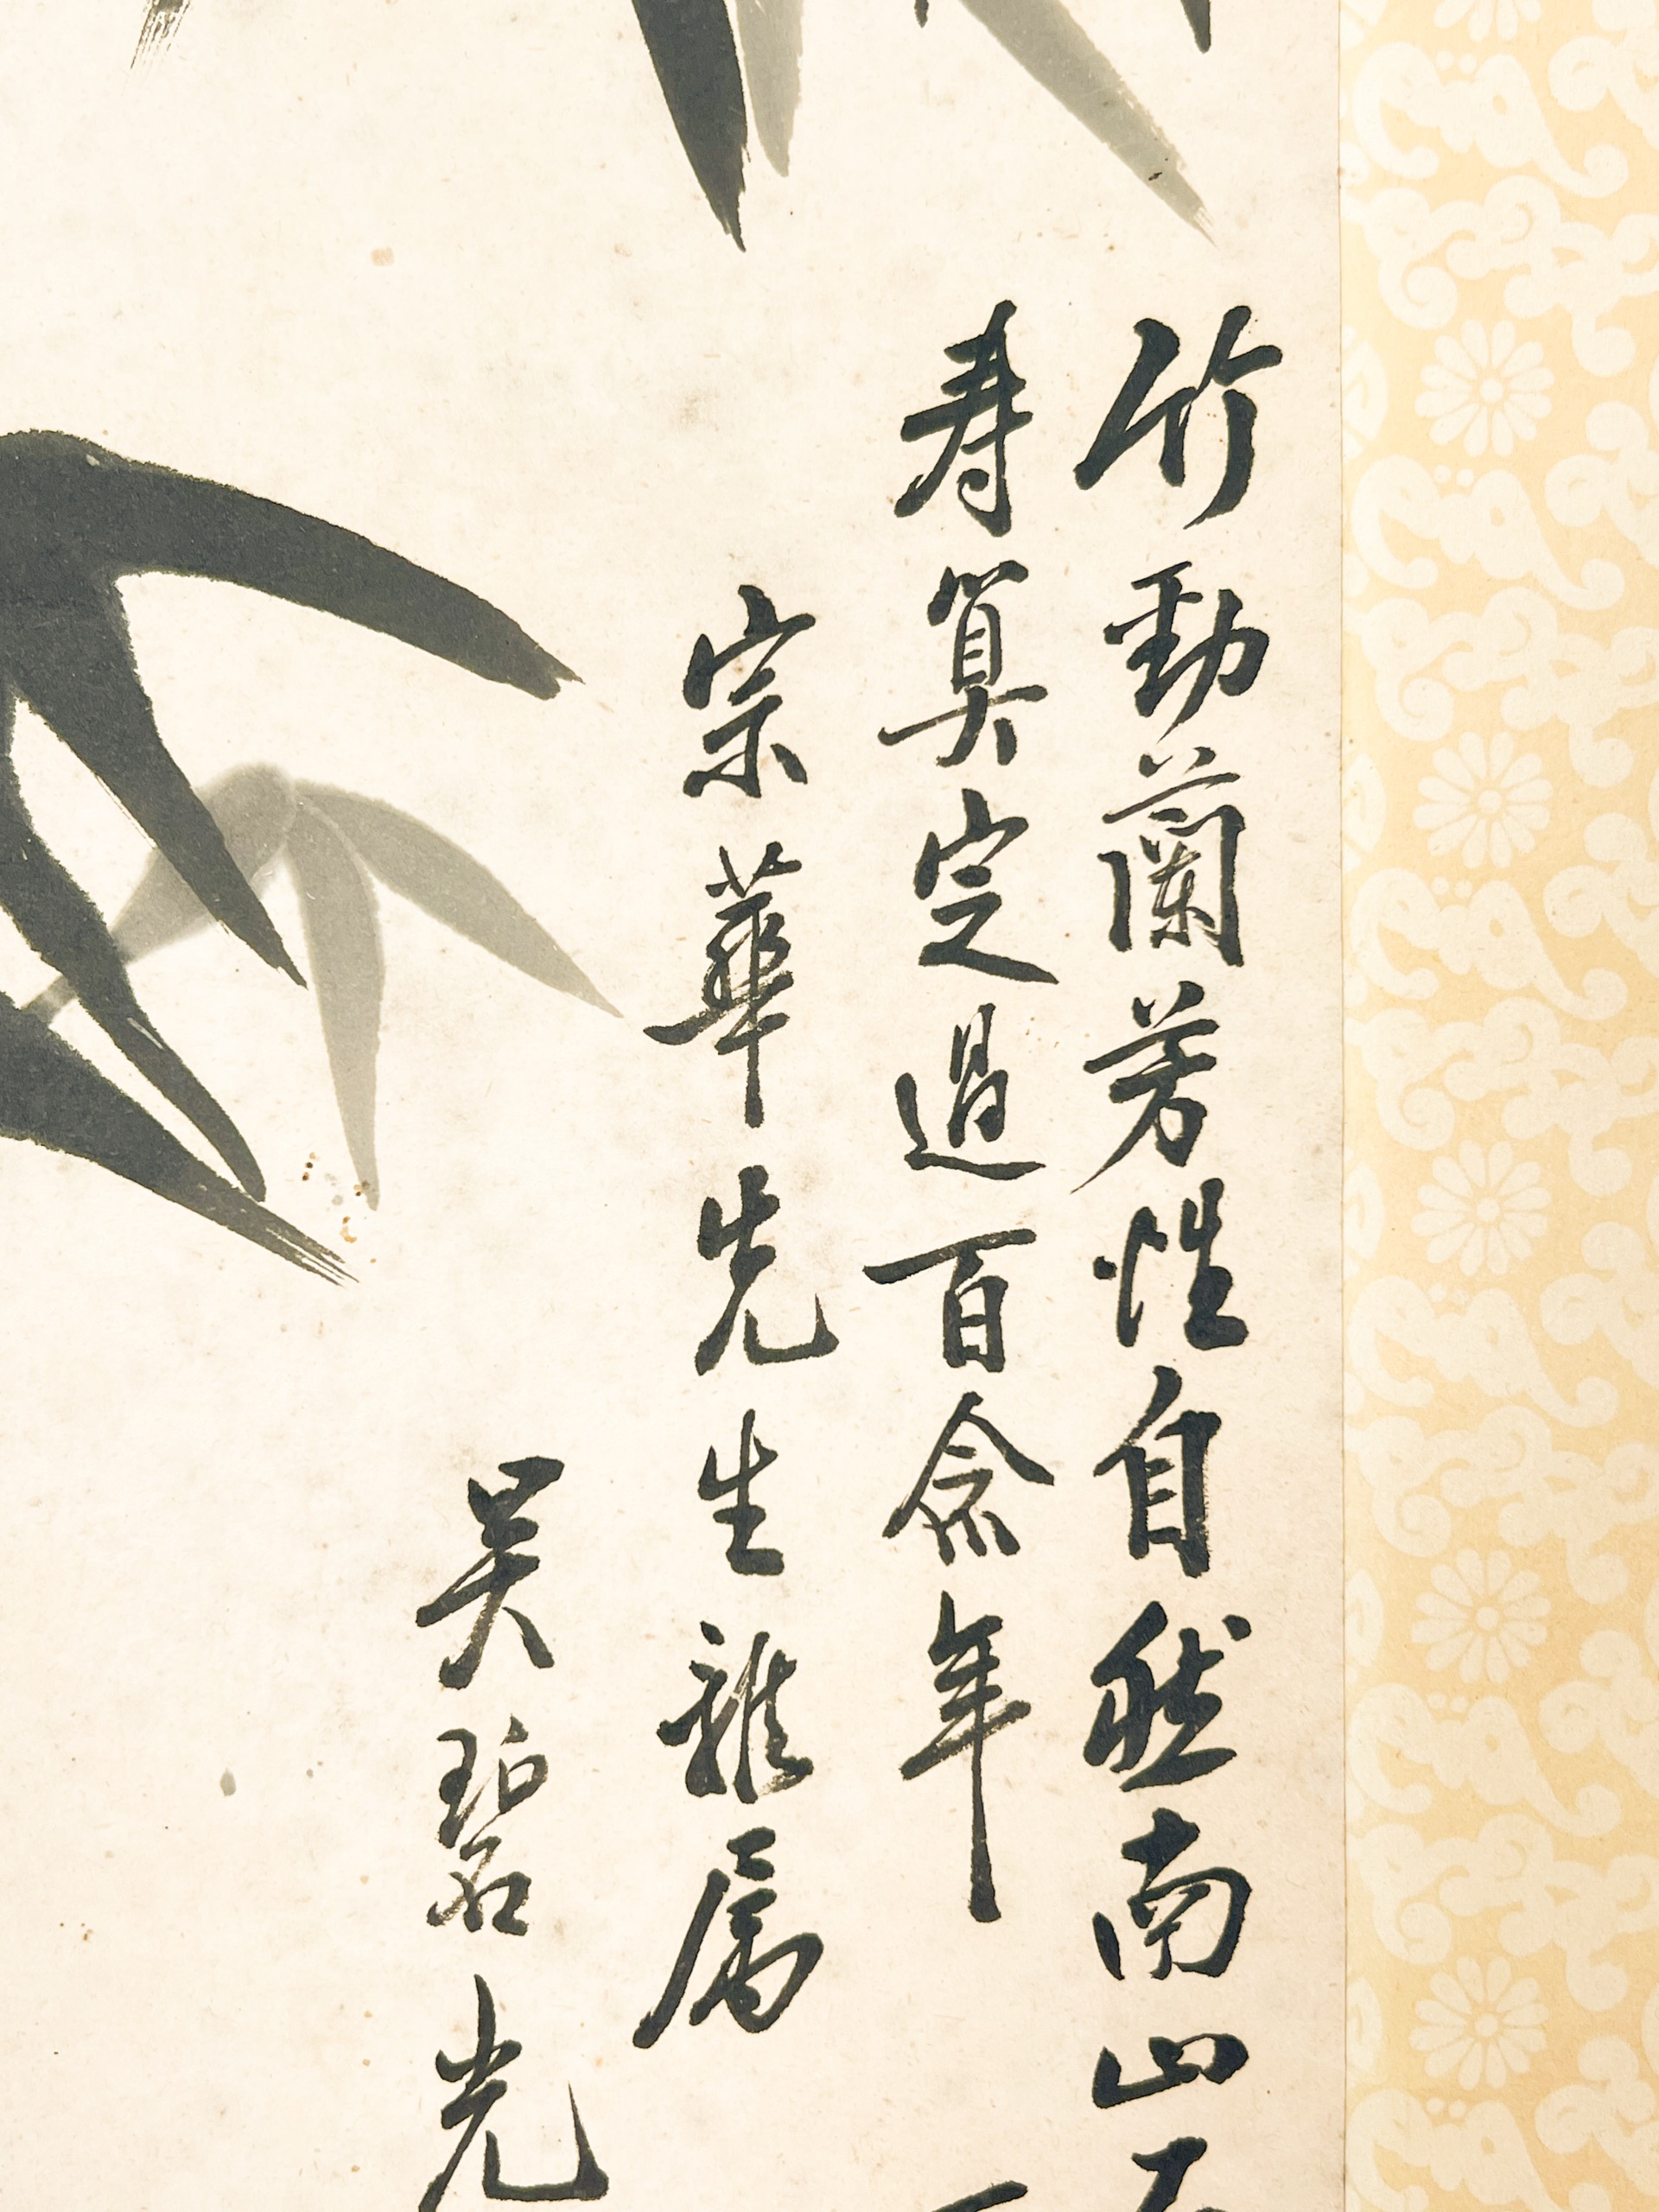 竹勁蘭芳性自然南山
寿算定過百念年
宗華先生雅属
吴碧光